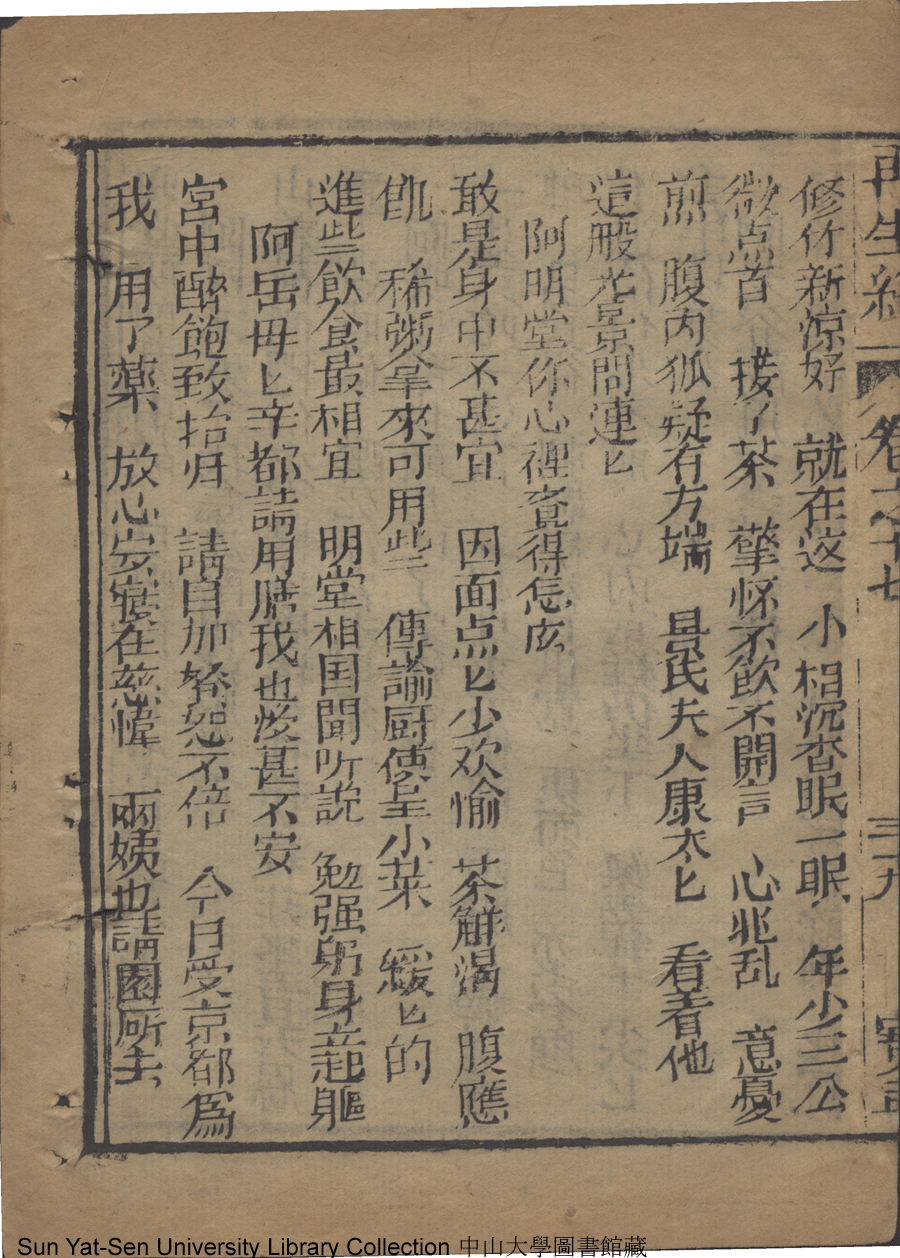 再生緣 卷之十七 三九 寳
修竹新凉好 就在这 小相沉杳眠一眠 年少三公
微点首 接了茶 擎怀不飲不開言 心兆乱 意憂
煎 腹内狐疑有方端 昙氏夫人康太匕 看着他
這般光景問連匕
阿明堂你心裡竟得怎庅
敢是身中不甚宜 因面点匕少欢愉 茶解渴 腹應
飢 稀粥拿來可用些 傳諭厨使呈小菜 緩匕的
進些飲食最相宜 明堂相国聞听說 勉强躬身立起軀
阿岳母匕辛都請用膳我也 甚不安
宮中醉飽致抬归 請自加 恕不倍 今日受京都爲
我 用了藥 放心安寔在慈幃 兩姨也請園所去
Sun Yat-Sen University Library Collection 中山大學圖書館藏